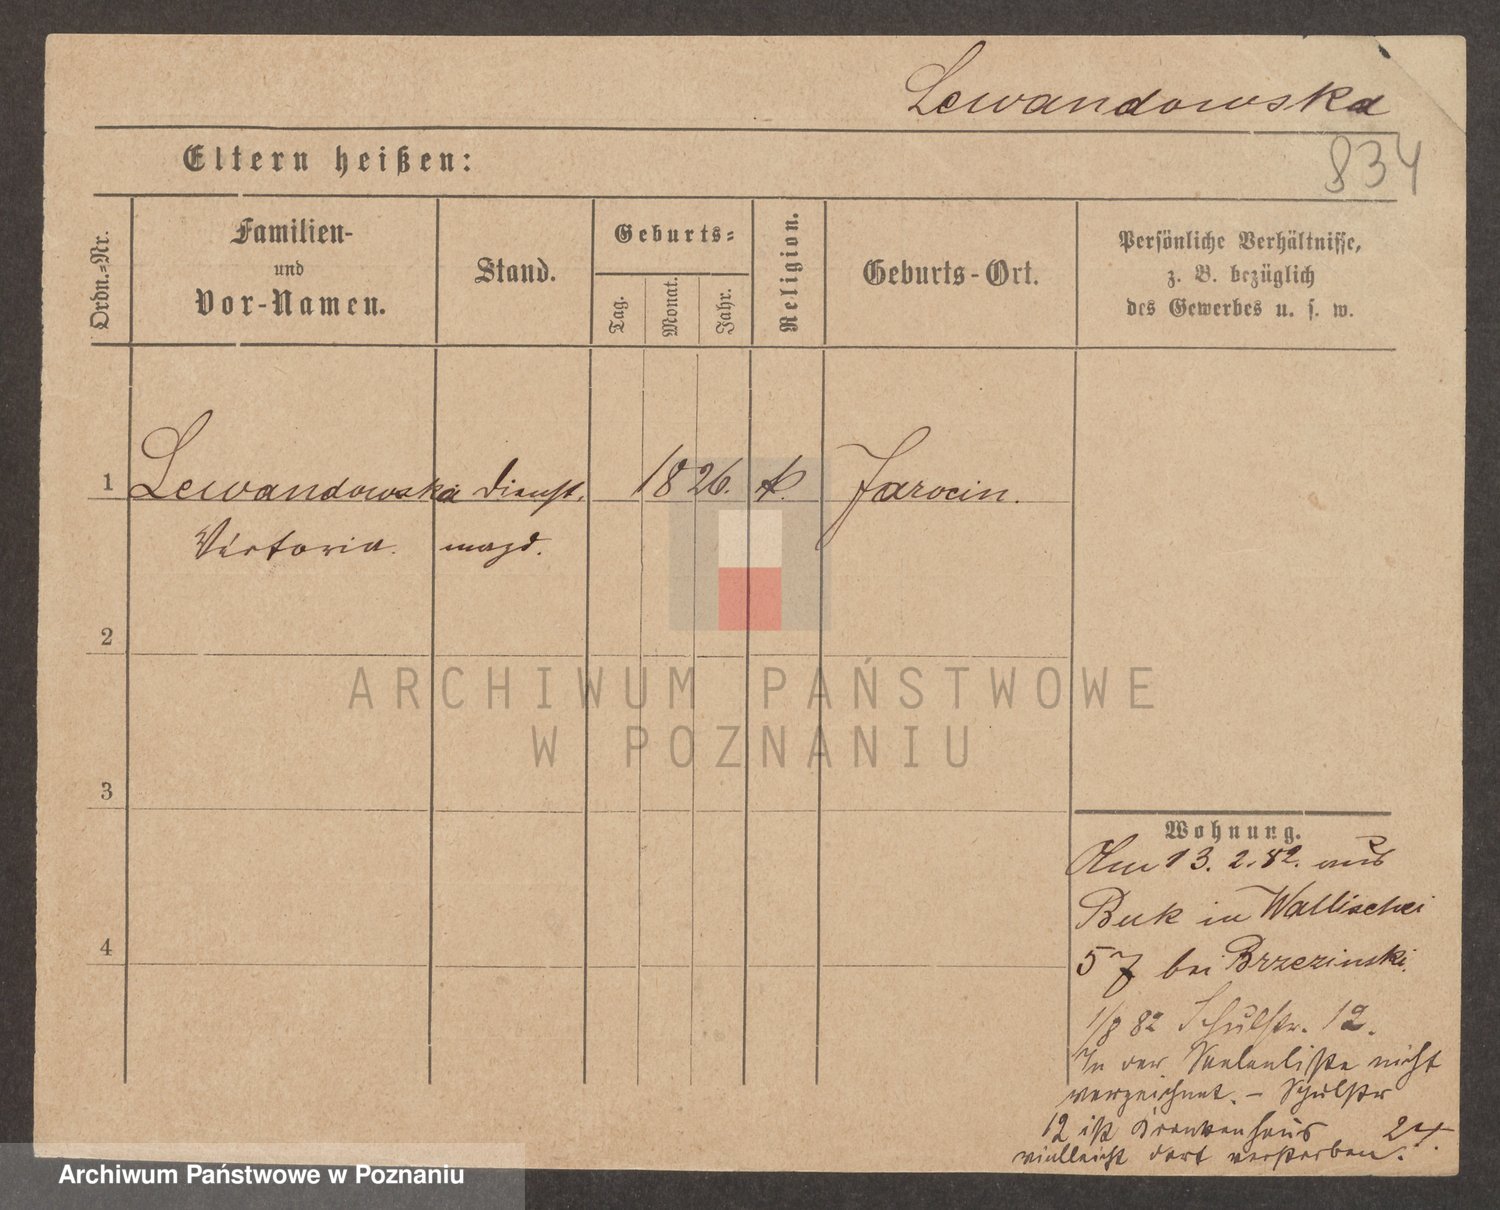 Lewandowska
834
Eltern heißen:
Ordn.-Nr.
Familien-
und
Vor-Namen.
Stand.
Geburts-
Tag.
Monat.
Jahr.
Religion.
Geburts-Ort.
Persönliche Verhältnisse,
z. B. bezüglich
des Gewerbes u. s. w.
1 Lewandowska Dienst. 1826. k. Jarocin.
Victoria. magd.
2
3
4
Wohnung.
Am 13. 2. 82. aus
Buk in Wallischei
57 bei Brzezinski.
1/8 82 Schulstr. 12.
In der Seelenliste nicht
verzeichnet. – Schulstr
12 ist Krankenhaus
vielleicht dort verstorben.
ARCHIWUM PAŃSTWOWE
W POZNANIU
Archiwum Państwowe w Poznaniu